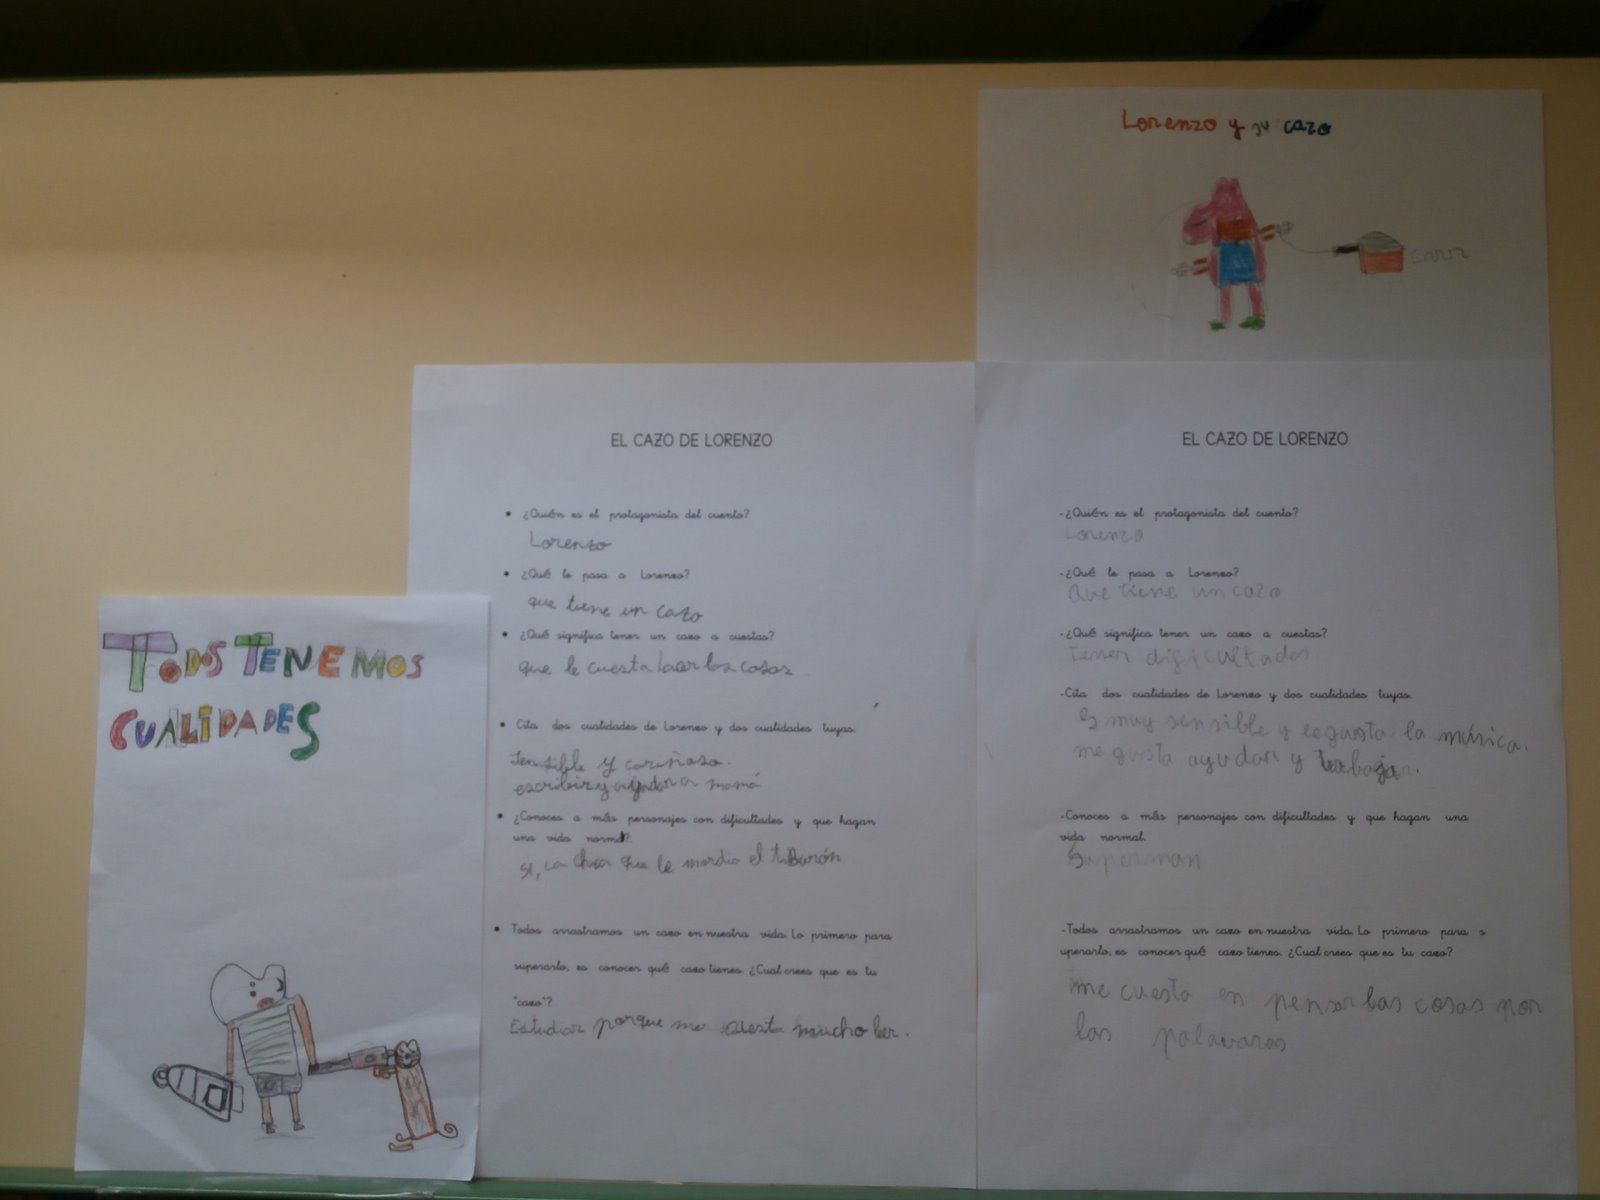 TODOS TENEMOS
CUALIDADES
EL CAZO DE LORENZO
• ¿Quién es el protagonista del cuento?
Lorenzo
• ¿Qué le pasa a Lorenzo?
que tiene un cazo
• ¿Qué significa tener un cazo a cuestas?
que le cuesta hacer las cosas
• Cita dos cualidades de Lorenzo y dos cualidades tuyas.
Sensible y cariñoso.
escribir y ayudar a mamá
• ¿Conoces a más personajes con dificultades y que hagan
una vida normal?.
SI, La chica que le mordio el tiburón
• Todos arrastramos un cazo en nuestra vida. Lo primero para
superarlo, es conocer qué cazo tienes. ¿Cual crees que es tu
"cazo"?
Estudiar porque me cuesta mucho leer.
Lorenzo y su cazo
EL CAZO DE LORENZO
-¿Quién es el protagonista del cuento?
Lorenzo
-¿Qué le pasa a Lorenzo?
Que tiene un cazo
-¿Qué significa tener un cazo a cuestas?
Tener dificultades
-Cita dos cualidades de Lorenzo y dos cualidades tuyas.
Es muy sensible y le gusta la música.
me gusta ayudar y trabajar.
-Conoces a más personajes con dificultades y que hagan una
vida normal.
Superman
-Todos arrastramos un cazo en nuestra vida. Lo primero para s
uperarlo, es conocer qué cazo tienes. ¿Cual crees que es tu cazo?
me cuesta en pensar las cosas por
las palavaras